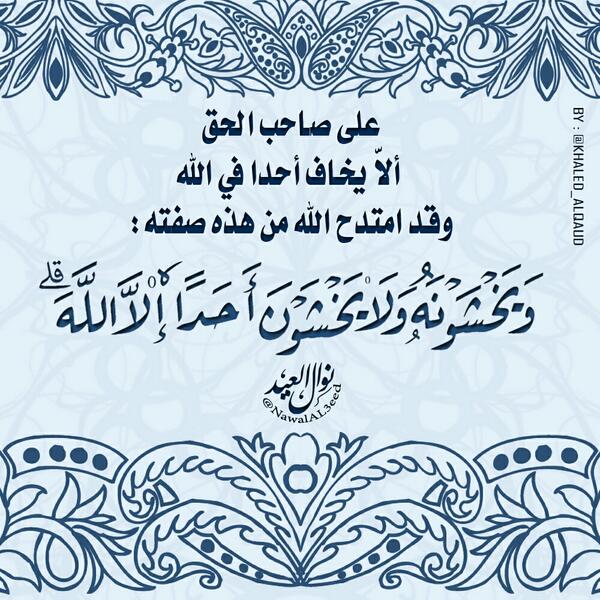 على صاحب الحق
ألاّ يخاف أحدا في الله
وقد امتدح الله من هذه صفته :
وَيَخْشَوْنَهُۥ وَلَا يَخْشَوْنَ أَحَدًا إِلَّا ٱللَّهَ ۗ
نوال العيد
@NawalAL3eed
BY : @KHALED_ALQAUD